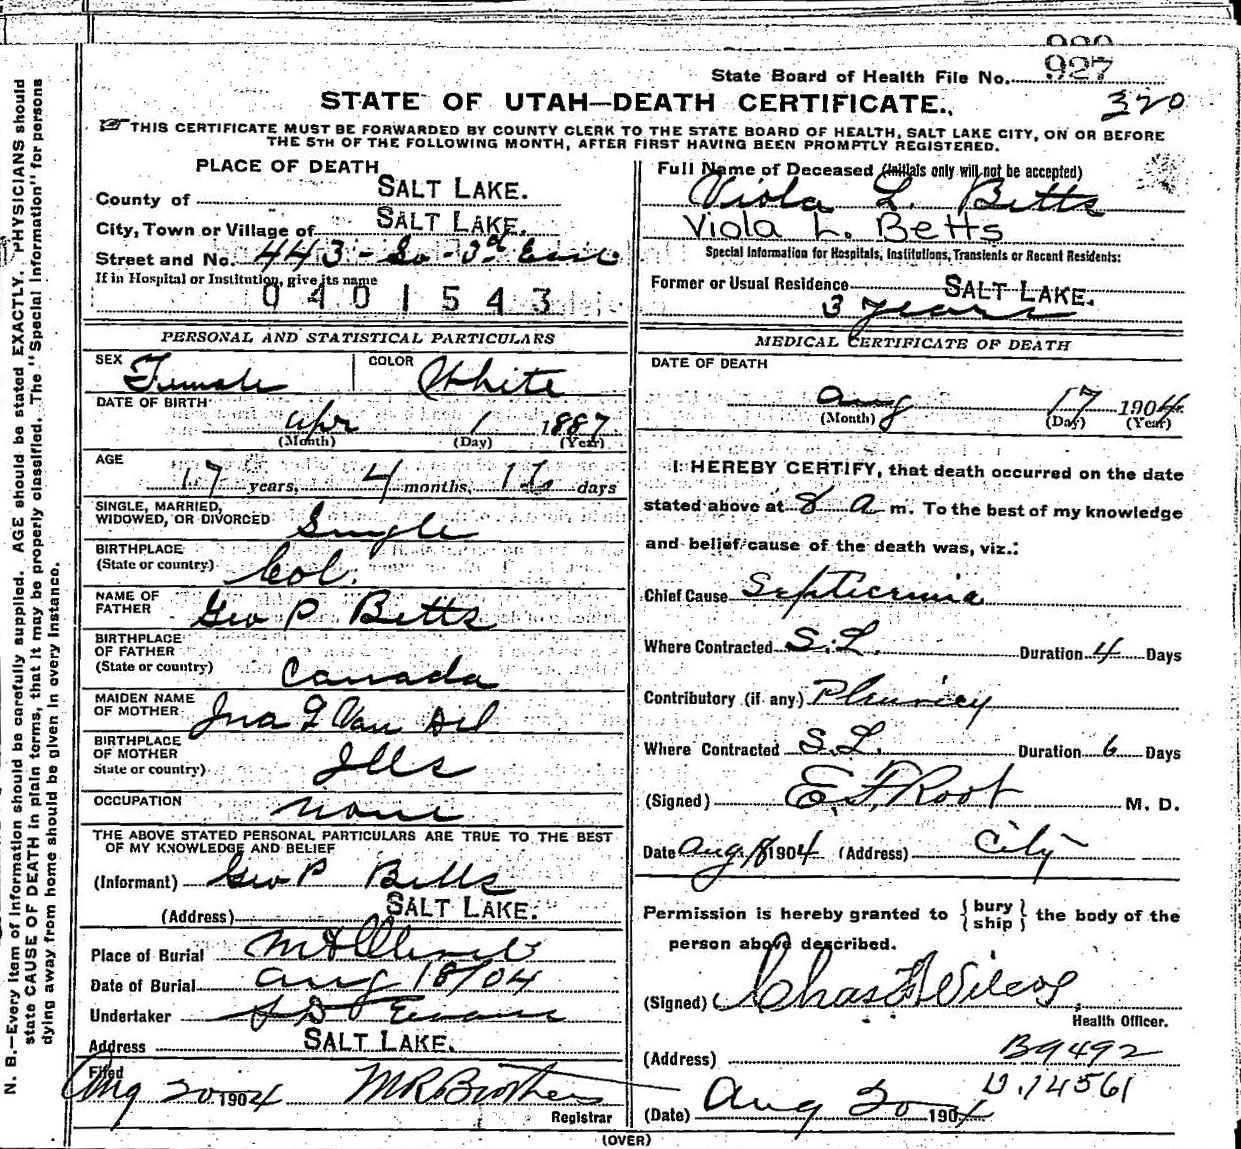 State Board of Health File No. 927
STATE OF UTAH—DEATH CERTIFICATE.
320
THIS CERTIFICATE MUST BE FORWARDED BY COUNTY CLERK TO THE STATE BOARD OF HEALTH, SALT LAKE CITY, ON OR BEFORE
THE 5TH OF THE FOLLOWING MONTH, AFTER FIRST HAVING BEEN PROMPTLY REGISTERED.
PLACE OF DEATH
County of SALT LAKE.
City, Town or Village of SALT LAKE.
Street and No. 443 - So - 3d East
If in Hospital or Institution, give its name
0401543
PERSONAL AND STATISTICAL PARTICULARS
SEX Female COLOR White
DATE OF BIRTH
Apr 1 1887
(Month) (Day) (Year)
AGE
17 years, 4 months, 16 days
SINGLE, MARRIED,
WIDOWED, OR DIVORCED Single
BIRTHPLACE
(State or country) Col.
NAME OF
FATHER Geo P Betts
BIRTHPLACE
OF FATHER
(State or country) Canada
MAIDEN NAME
OF MOTHER Ina F Van
BIRTHPLACE
OF MOTHER
State or country) Ills
OCCUPATION none
THE ABOVE STATED PERSONAL PARTICULARS ARE TRUE TO THE BEST
OF MY KNOWLEDGE AND BELIEF
(Informant) Geo P Betts
(Address) SALT LAKE.
Place of Burial Mt Olivet
Date of Burial Aug 18/04
Undertaker S D Evans
Address SALT LAKE.
Filed
Aug 20 1904 M R Brothers
Registrar
Full Name of Deceased (Initials only will not be accepted)
Viola L. Betts
Viola L. Betts
Special Information for Hospitals, Institutions, Transients or Recent Residents:
Former or Usual Residence SALT LAKE.
3 years
MEDICAL CERTIFICATE OF DEATH
DATE OF DEATH
Aug 17 1904
(Month) (Day) (Year)
I HEREBY CERTIFY, that death occurred on the date
stated above at 8 a m. To the best of my knowledge
and belief cause of the death was, viz.:
Chief Cause Septicemia
Where Contracted S. L. Duration 4 Days
Contributory (if any) Pleuricy
Where Contracted S. L. Duration 6 Days
(Signed) E. F. Root M. D.
Date Aug. 18 1904 (Address) City
Permission is hereby granted to { bury ship } the body of the
person above described.
(Signed) Chas F Wilcox,
Health Officer.
(Address) B9492
D.14561
(Date) Aug 20 1904
(OVER)
N. B.—Every item of information should be carefully supplied. AGE should be stated EXACTLY. PHYSICIANS should
state CAUSE OF DEATH in plain terms, that it may be properly classified. The "Special Information" for persons
dying away from home should be given in every instance.